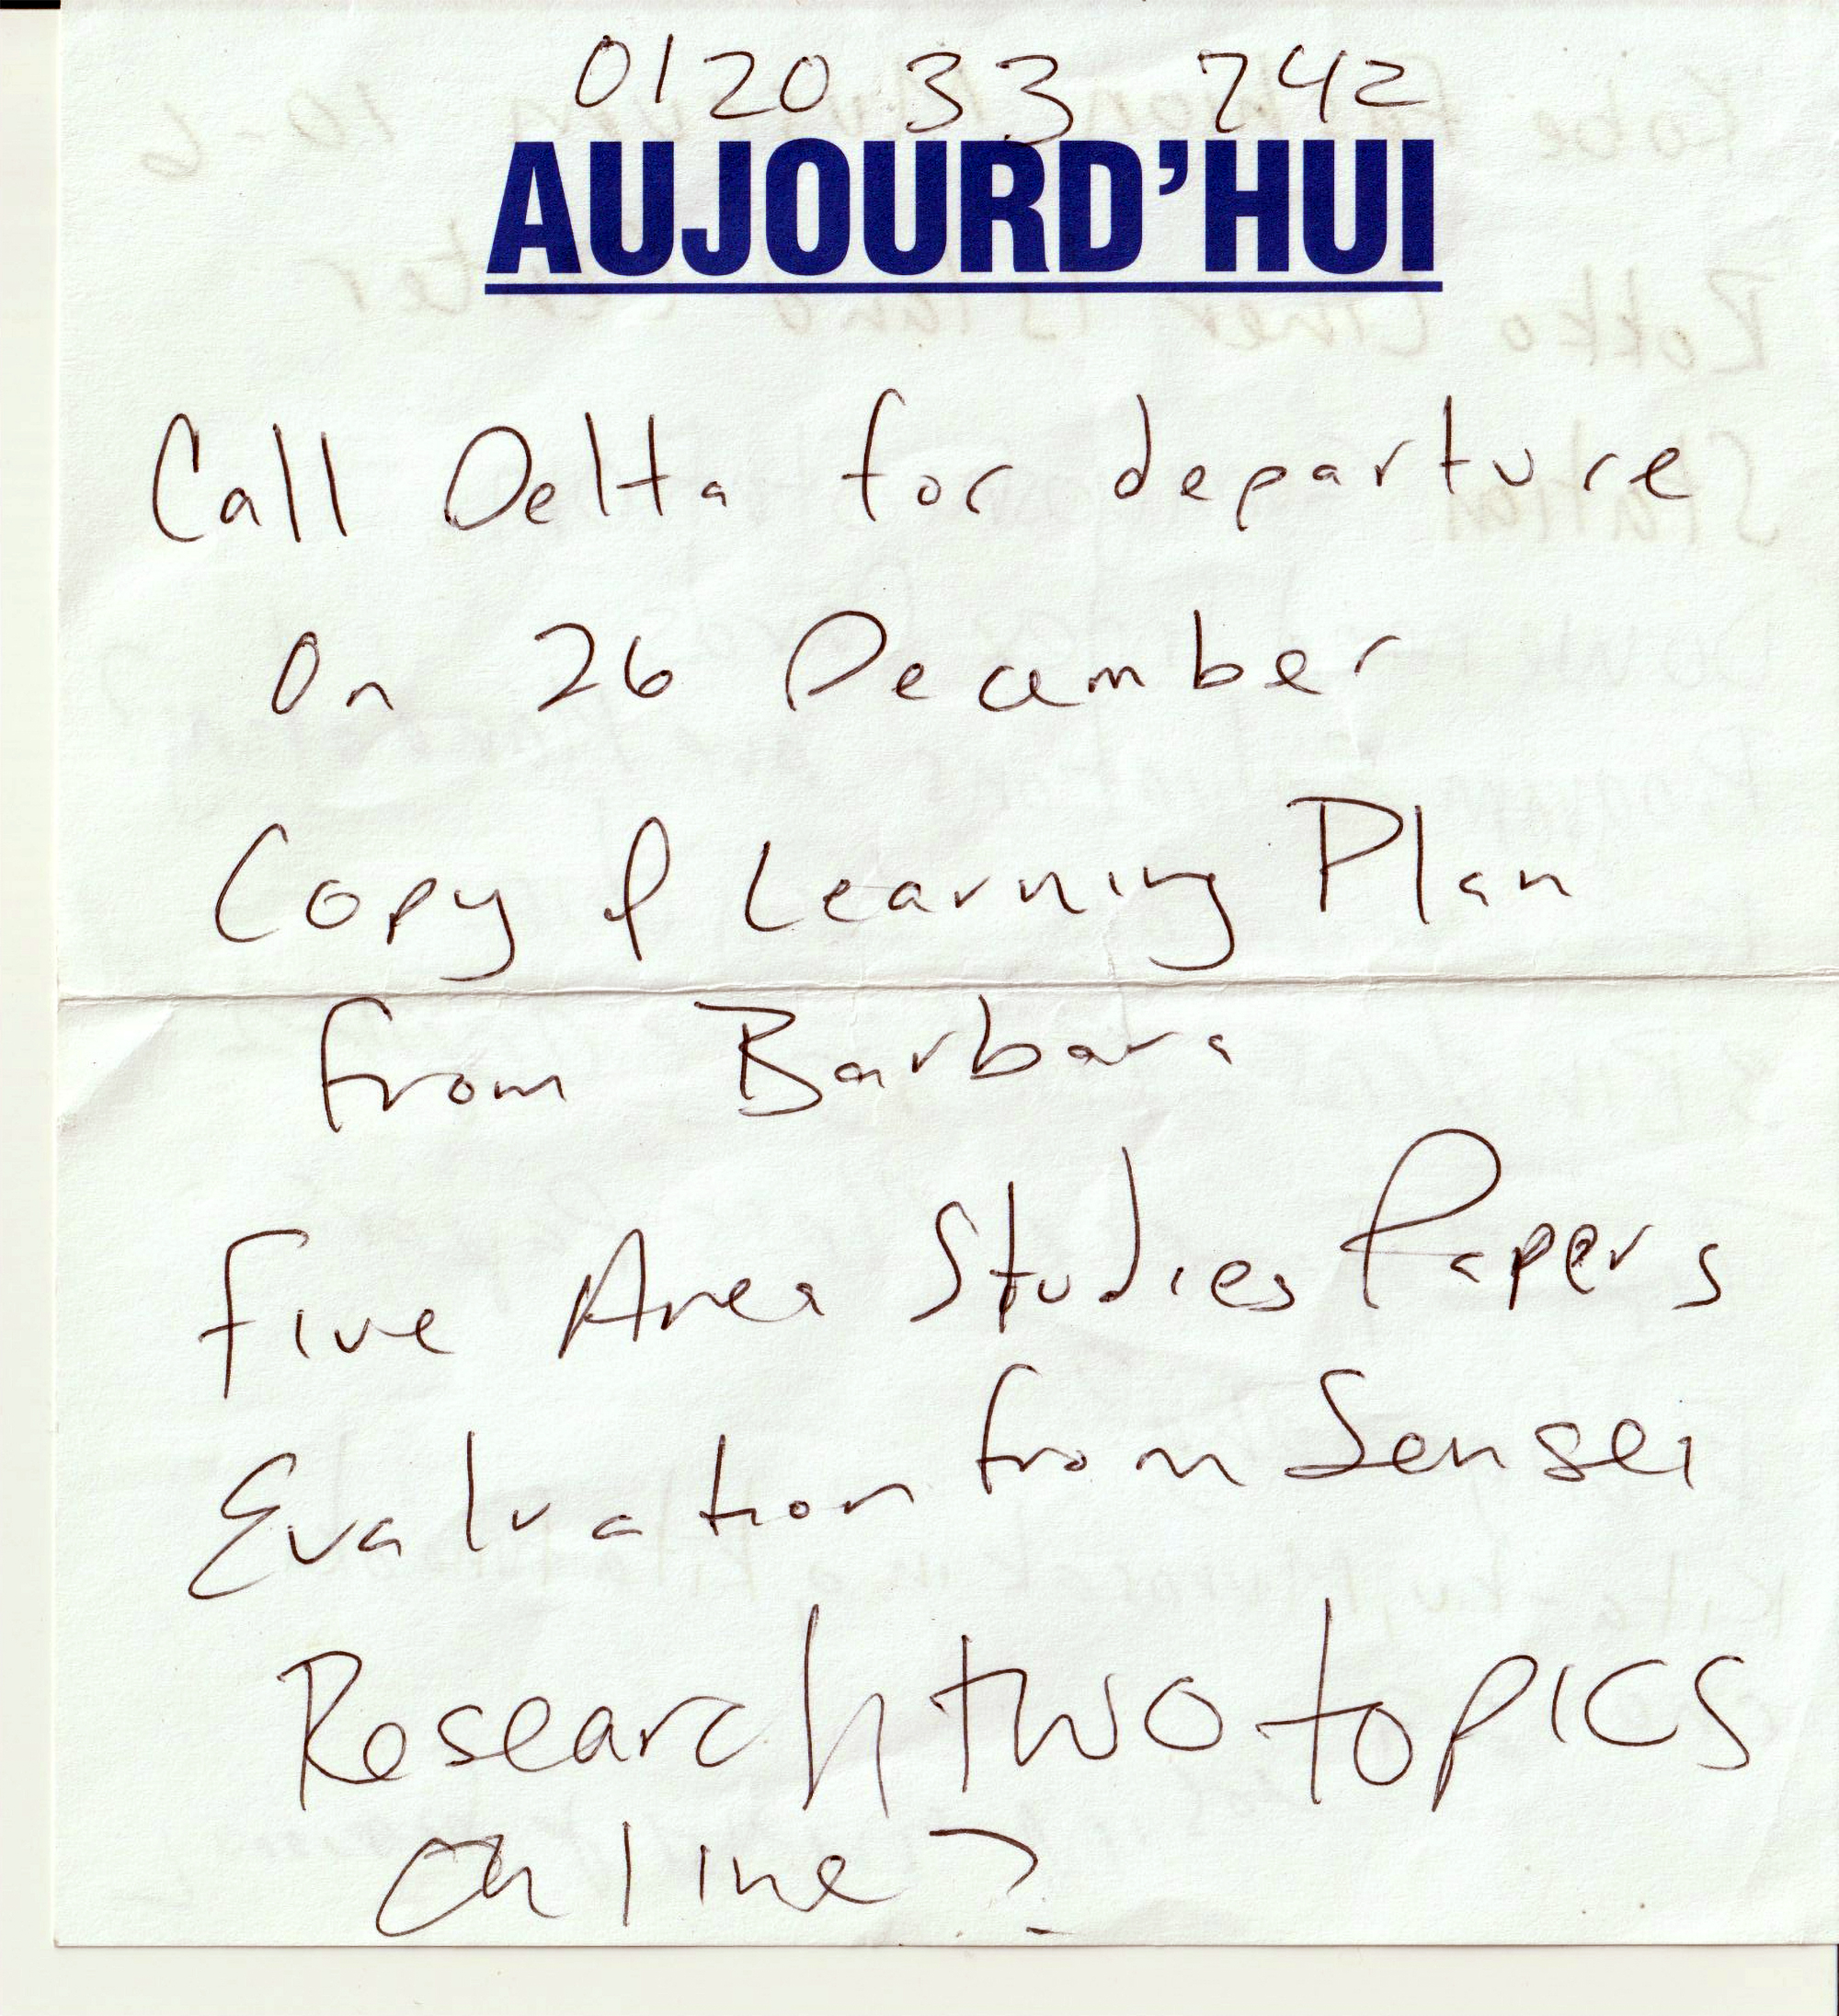 0120 33 742
AUJOURD'HUI
Call Delta for departure
On 26 December
Copy of Learning Plan
from Barbara
Five Area Studies Papers
Evaluation from Sensei
Research two topics
online?